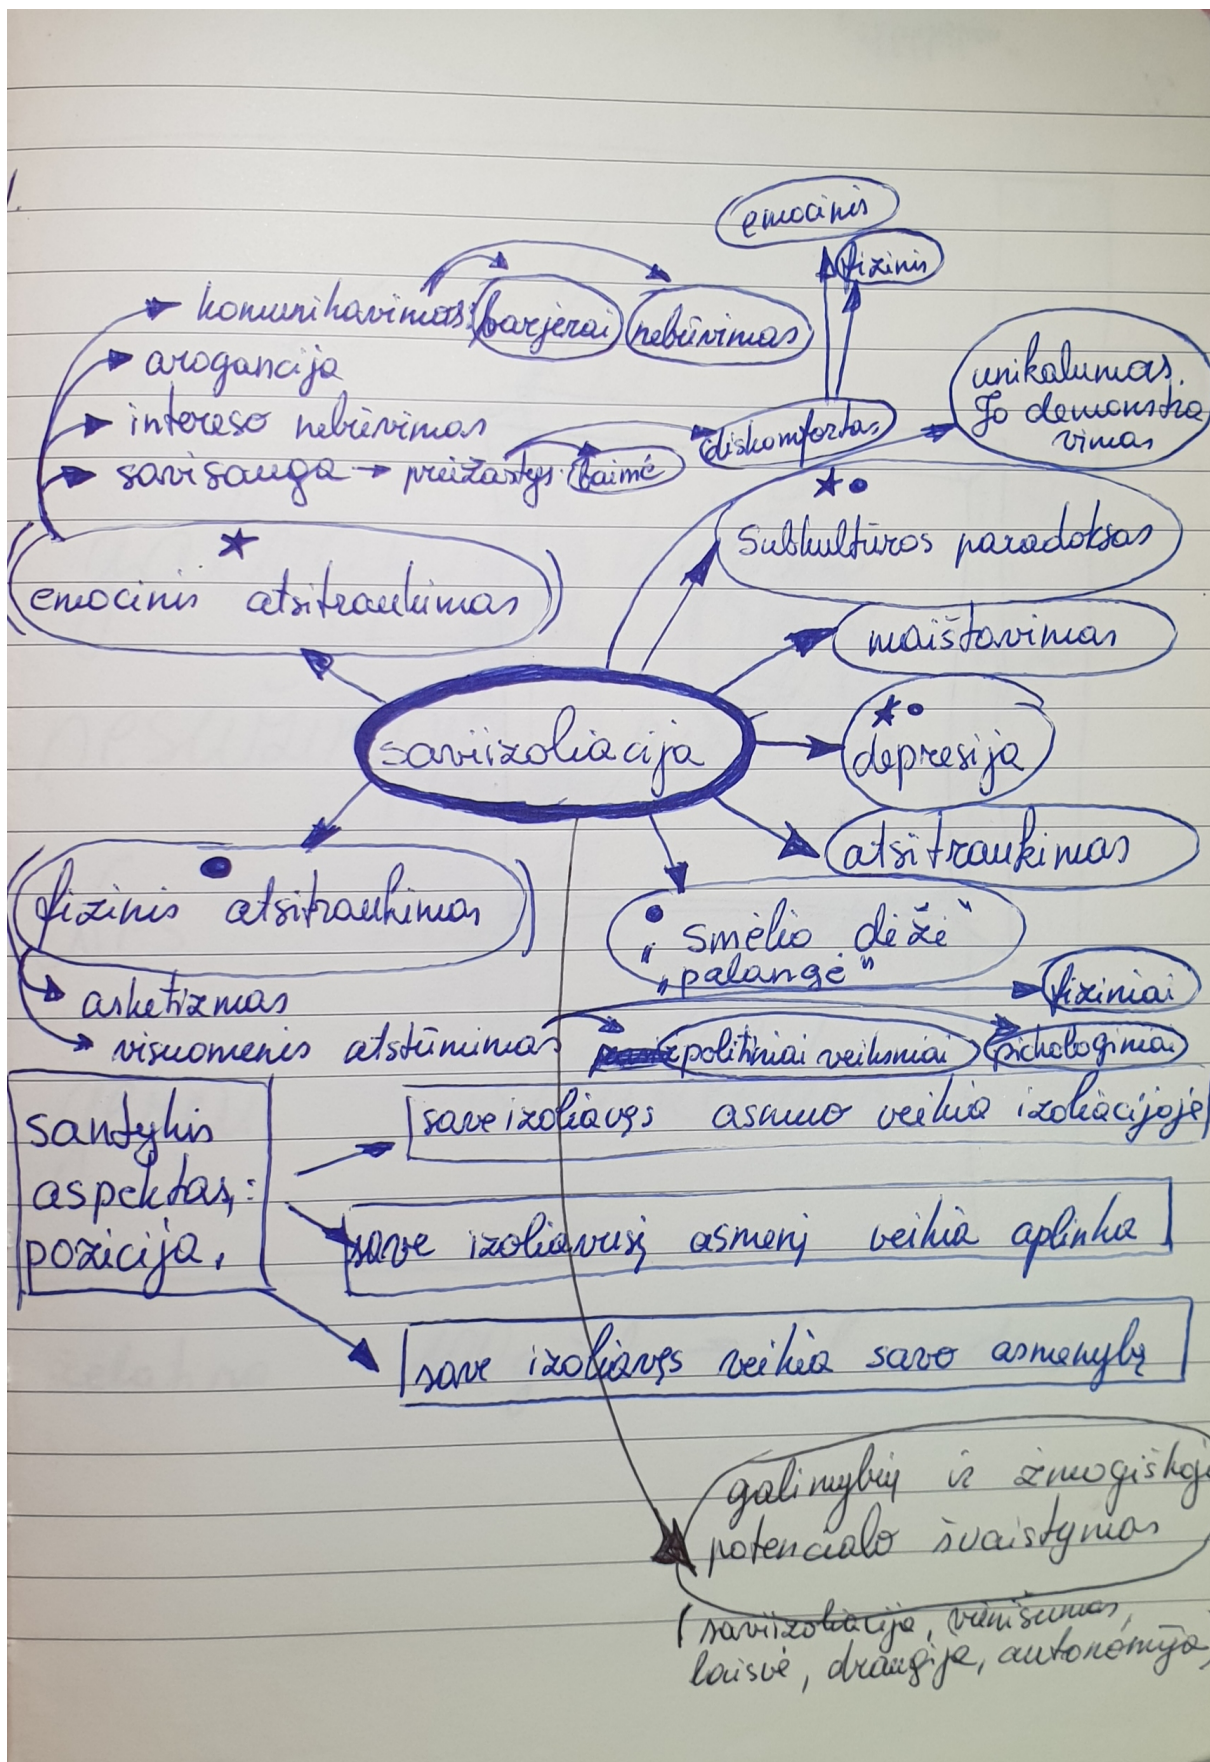 1.
emocinis
fizinis
komunikavimas: barjerai nebūvimas
arogancija
unikalumas.
Jo demonstra
vimas
intereso nebūvimas
diskomfortas
savisauga → priežastys: baimė
subkultūros paradoksas
emocinis atsitraukimas
maištavimas
saviizoliacija
depresija
atsitraukimas
fizinis atsitraukimas
„smėlio dėžė“
„palangė“
fiziniai
asketizmas
visuomenės atstūmimas politiniai veiksniai psichologiniai
santykis
aspektas,:
pozicija,
save izoliavęs asmuo veikia izoliacijoje
save izoliavusį asmenį veikia aplinka
save izoliavęs veikia savo asmenybę
galimybių ir žmogiškojo
potencialo švaistymas
(saviizoliacija, vienišumas,
laisvė, draugija, autonomija,